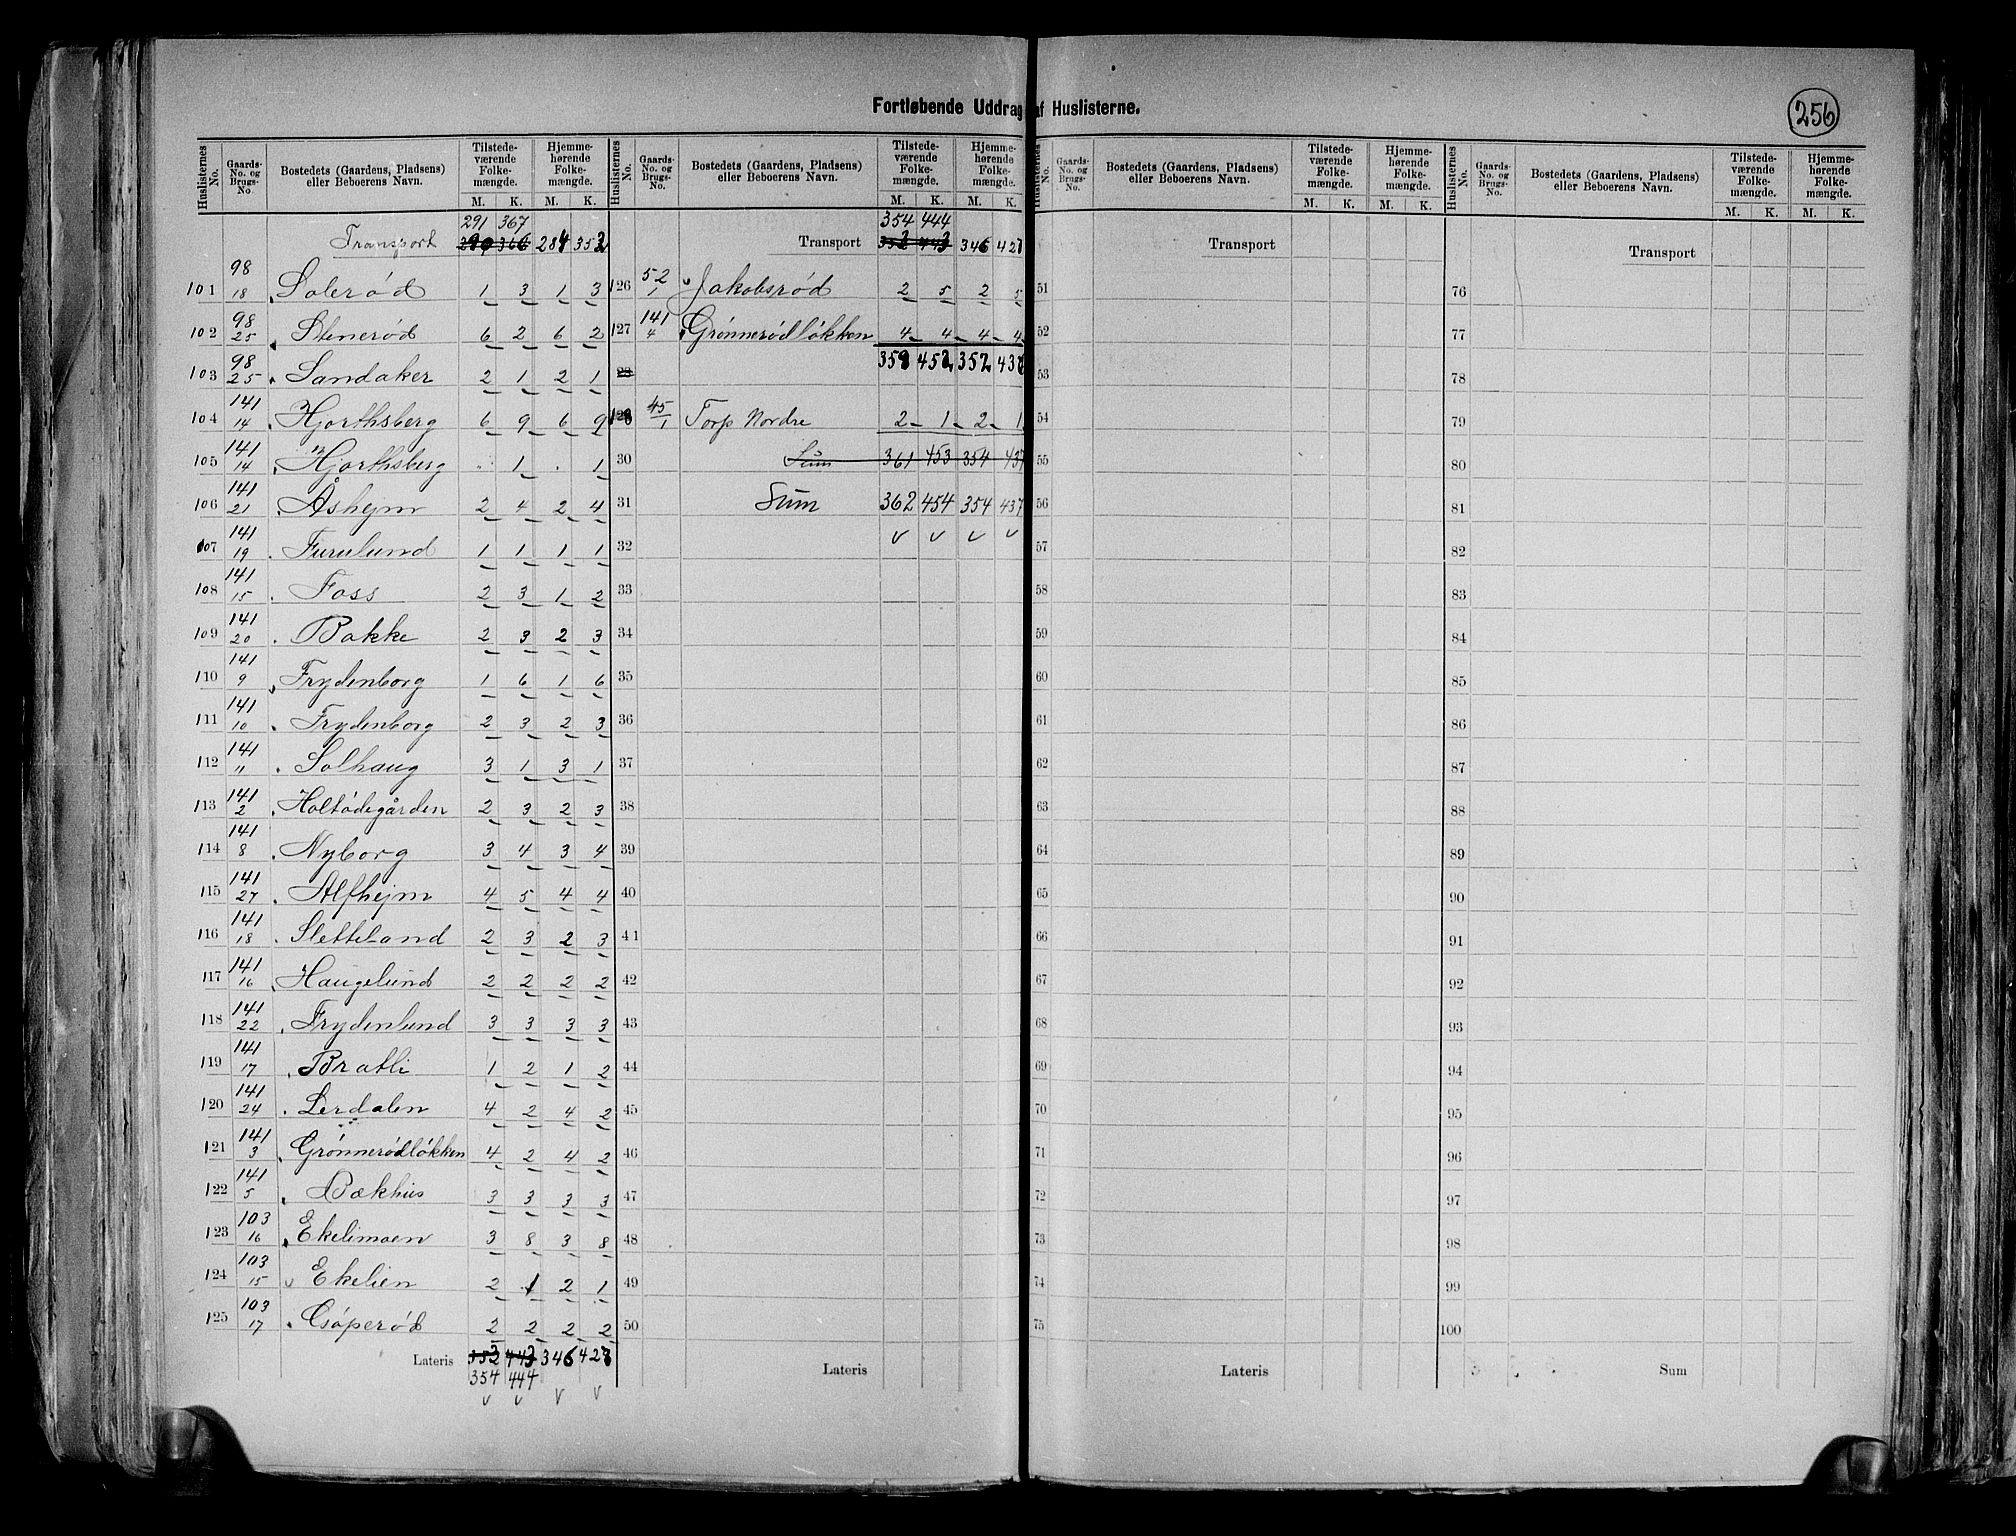 256
Fortløbende Uddrag af Huslisterne.
Huslisternes No. | Gaards-No. og Brugs-No. | Bostedets (Gaardens, Pladsens) eller Beboerens Navn. | Tilstedeværende Folkemængde. M. K. | Hjemmehørende Folkemængde. M. K.
291 367
Transport 290 366 284 352
101 98/18 Solerød 1 3 1 3
102 98/25 Stenerød 6 2 6 2
103 98/25 Sandaker 2 1 2 1
104 141/14 Hjorthsberg 6 9 6 9
105 141/14 Hjorthsberg " 1 " 1
106 141/21 Åshejm 2 4 2 4
107 141/19 Furulund 1 1 1 1
108 141/15 Foss 2 3 1 2
109 141/20 Bakke 2 3 2 3
110 141/9 Frydenborg 1 6 1 6
111 141/10 Frydenborg 2 3 2 3
112 141/11 Solhaug 3 1 3 1
113 141/2 Holtødegården 2 3 2 3
114 141/8 Nyborg 3 4 3 4
115 141/27 Alfhejm 4 5 4 4
116 141/18 Sletteland 2 3 2 3
117 141/16 Haugelund 2 2 2 2
118 141/22 Frydenlund 3 3 3 3
119 141/17 Bratli 1 2 1 2
120 141/24 Lerdalen 4 2 4 2
121 141/3 Grønnerødløkken 4 2 4 2
122 141/5 Bækhus 3 3 3 3
123 103/16 Ekelimoen 3 8 3 8
124 103/15 Ekelien 2 1 2 1
125 103/17 2 2 2 2
Lateris 353 443 346 428
354 444
v v v v
Huslisternes No. | Gaards-No. og Brugs-No. | Bostedets (Gaardens, Pladsens) eller Beboerens Navn. | Tilstedeværende Folkemængde. M. K. | Hjemmehørende Folkemængde. M. K.
354 444
Transport 353 443 346 428
126 52/1 Jakobsrød 2 5 2 5
127 141/4 Grønnerødløkken 4 4 4 4
28 359 452 352 437
128 45/1 Torp Nordre 2 1 2 1
30 Sum 361 453 354 437
31 Sum 362 454 354 437
32 v v v v
33
34
35
36
37
38
39
40
41
42
43
44
45
46
47
48
49
50
Lateris
Huslisternes No. | Gaards-No. og Brugs-No. | Bostedets (Gaardens, Pladsens) eller Beboerens Navn. | Tilstedeværende Folkemængde. M. K. | Hjemmehørende Folkemængde. M. K.
Transport
51
52
53
54
55
56
57
58
59
60
61
62
63
64
65
66
67
68
69
70
71
72
73
74
75
Lateris
Huslisternes No. | Gaards-No. og Brugs-No. | Bostedets (Gaardens, Pladsens) eller Beboerens Navn. | Tilstedeværende Folkemængde. M. K. | Hjemmehørende Folkemængde. M. K.
Transport
76
77
78
79
80
81
82
83
84
85
86
87
88
89
90
91
92
93
94
95
96
97
98
99
100
Sum